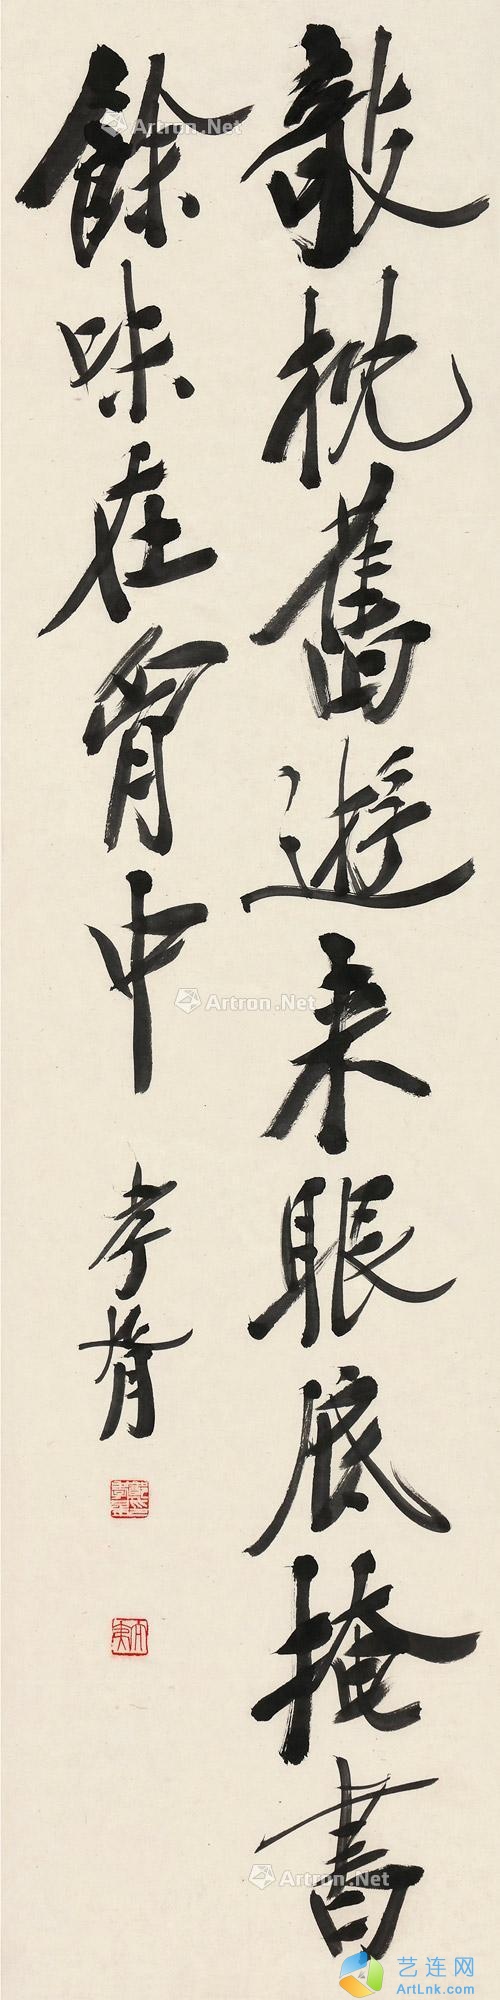 攲枕舊遊来眼底掩書
餘味在胷中
孝胥
Artron.Net
Artron.Net
Artron.Net
艺连网
ArtLnk.com